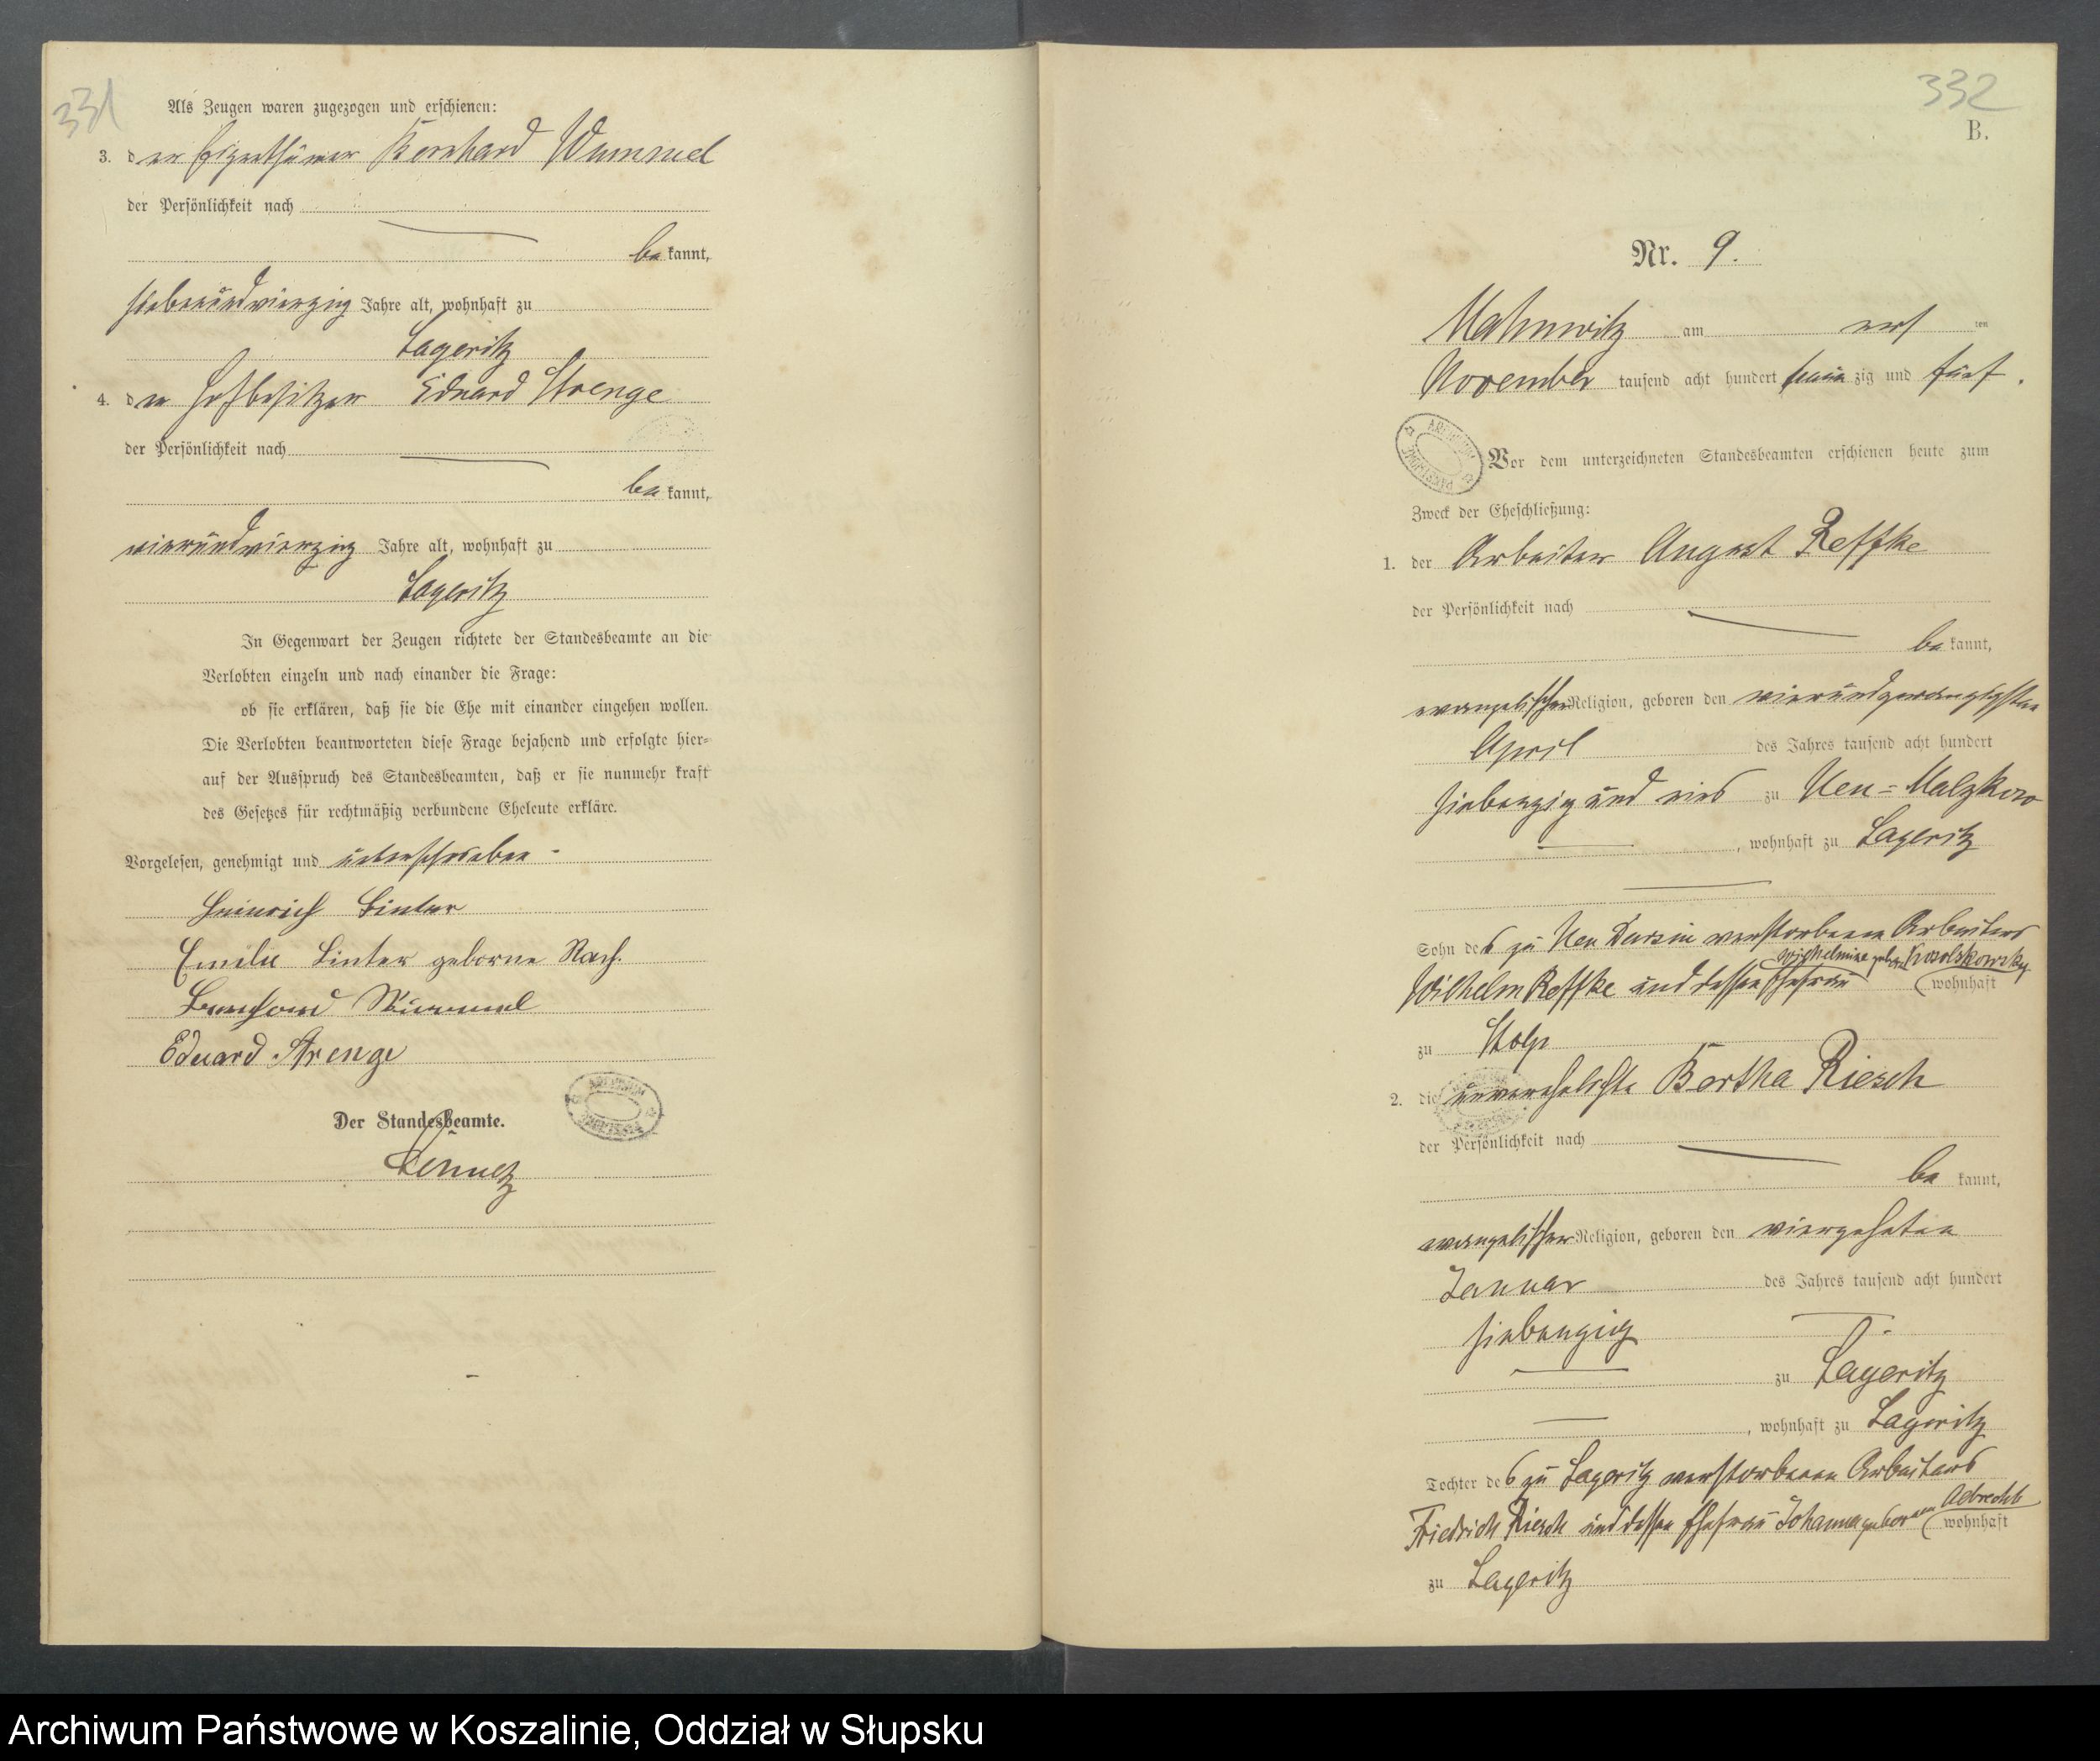 331
Als Zeugen waren zugezogen und erschienen:
3. der Eigenthümer Bernhard Wummel
der Persönlichkeit nach
bekannt,
siebenundvierzig Jahre alt, wohnhaft zu
Lageritz
4. der Hofbesitzer Eduard Strenge
der Persönlichkeit nach
bekannt,
vierundvierzig Jahre alt, wohnhaft zu
Lageritz
In Gegenwart der Zeugen richtete der Standesbeamte an die
Verlobten einzeln und nach einander die Frage:
ob sie erklären, daß sie die Ehe mit einander eingehen wollen.
Die Verlobten beantworteten diese Frage bejahend und erfolgte hier-
auf der Ausspruch des Standesbeamten, daß er sie nunmehr kraft
des Gesetzes für rechtmäßig verbundene Eheleute erkläre.
Vorgelesen, genehmigt und unterschrieben
Heinrich Linter
Emilie Linter geborne Rach.
Bernhard Wummel
Eduard Strenge
Der Standesbeamte.
332
B.
Nr. 9.
Mahnwitz am ersten
November tausend acht hundert neunzig und fünf.
Vor dem unterzeichneten Standesbeamten erschienen heute zum
Zweck der Eheschließung:
1. der Arbeiter August Reffke
der Persönlichkeit nach
bekannt,
evangelischer Religion, geboren den vierundzwanzigsten
April des Jahres tausend acht hundert
siebenzig und eins zu Neu-Malzkow
, wohnhaft zu Lageritz
Sohn des zu Neu Darsin verstorbenen Arbeiters
Wilhelm Reffke und dessen Ehefrau Wilhelmine wohnhaft
zu Stolp
2. die unverehelichte Bertha Riesch
der Persönlichkeit nach
bekannt,
evangelischer Religion, geboren den vierzehnten
Januar des Jahres tausend acht hundert
siebenzig
zu Lageritz
, wohnhaft zu Lageritz
Tochter des zu Lageritz verstorbenen Arbeiters
Friedrich Riesch und dessen Ehefrau Johanna geborenen Albrecht wohnhaft
zu Lageritz
Archiwum Państwowe w Koszalinie, Oddział w Słupsku